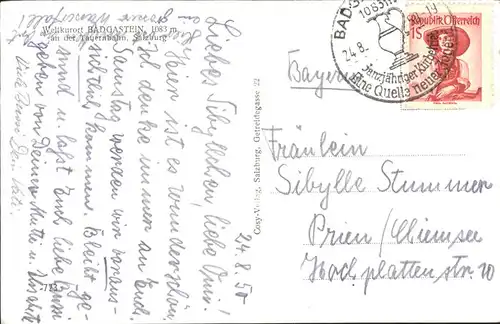 Weltkurort BADGASTEIN, 1083 m,
an der Tauernbahn, Salzburg
24.8.50
Liebes Sibyllchen, liebe Omi!
Hier ist es wunderschön
u. ich denke immer an Euch.
Samstag werden wir voraus-
sichtlich kommen. Bleibt ge-
sund u. lasst Euch liebe Bussi
geben von Deiner Mutti u.
Cosy-Verlag, Salzburg, Getreidegasse 22
BAD
1083m
24.8.
Ganzjähriger Kurbetrieb
Eine Quelle neuer Kraft
Republik Österreich
1S
Bayern
Fräulein
Sibylle Stummer
Prien/Chiemsee
Hochplattenstr. 10